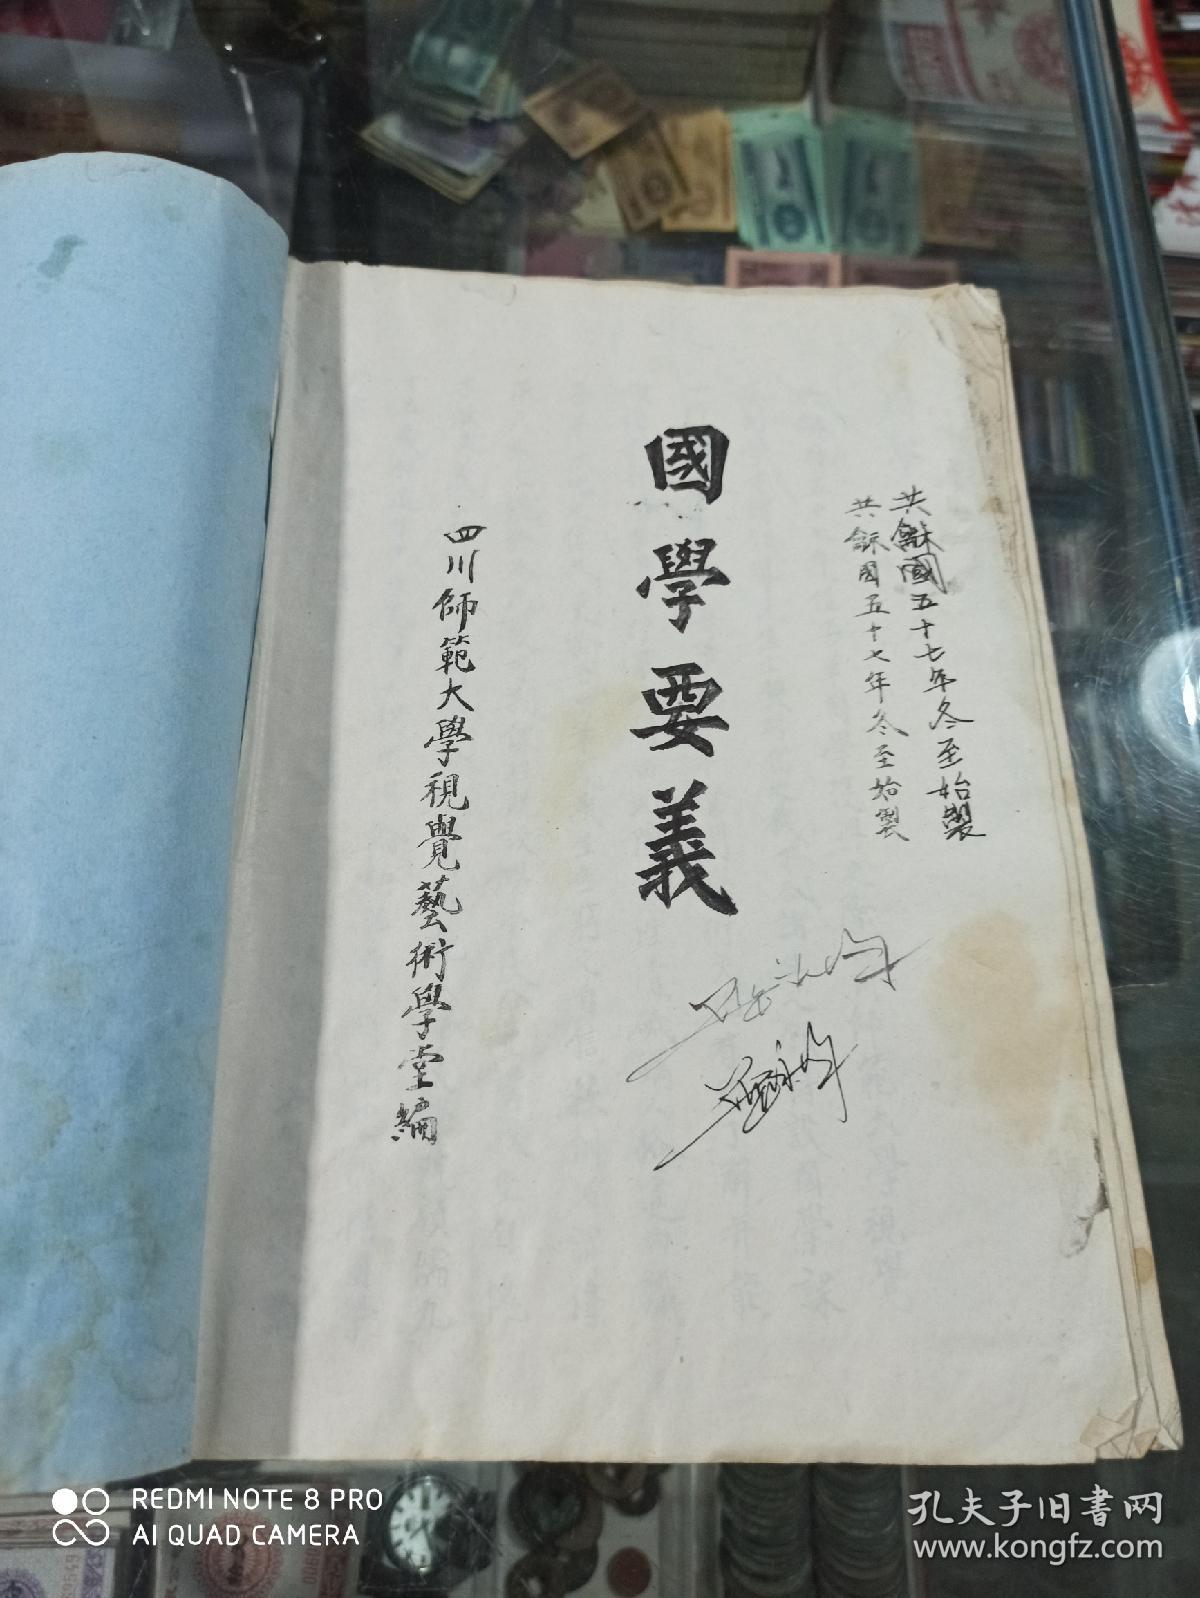 共龢國五十七年冬至始製
共龢國五十七年冬至始製
國學要義
四川師範大學視覺藝術學堂編
REDMI NOTE 8 PRO
AI QUAD CAMERA
孔夫子旧書网
www.kongfz.com